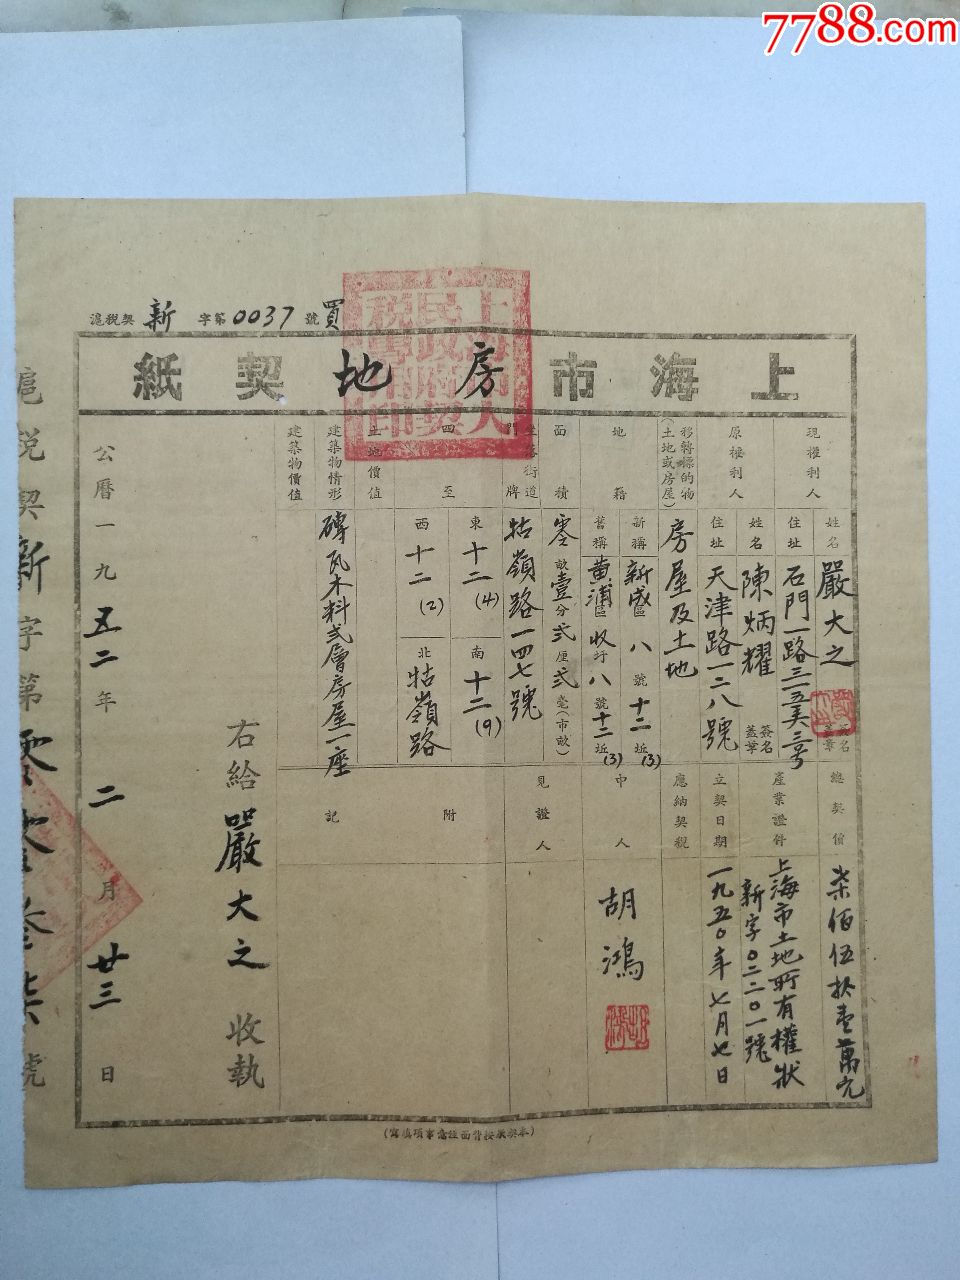 7788.com
滬稅契新字第0037號買
上海市房地契紙
上海市人民政府契稅專用印
現權利人
姓名
嚴大之
簽名蓋章
住址
石門一路三五弄三号
原權利人
姓名
陳炳耀
簽名蓋章
住址
天津路一二八號
移轉標的物(土地或房屋)
房屋及土地
地籍
新稱
新成區八號十二坵(3)
舊稱
黃浦區收圩八號十二坵(3)
面積
零畝壹分弍厘弍毫(市畝)
坐落街道門牌
牯嶺路一四七號
四至
東
十二(4)
南
十二(9)
西
十二(2)
北
牯嶺路
土地價值
建築物情形
磚瓦木料弍層房屋一座
建築物價值
總契價
柒佰伍拾壹萬元
產業證件
上海市土地所有權狀
新字0二二0一號
立契日期
一九五0年七月七日
應納契稅
中人
胡鴻
見證人
附記
右給嚴大之收執
公曆一九五二年二月廿三日
滬稅契新字第零零叁柒號
(本契紙按背面注意事項填寫)